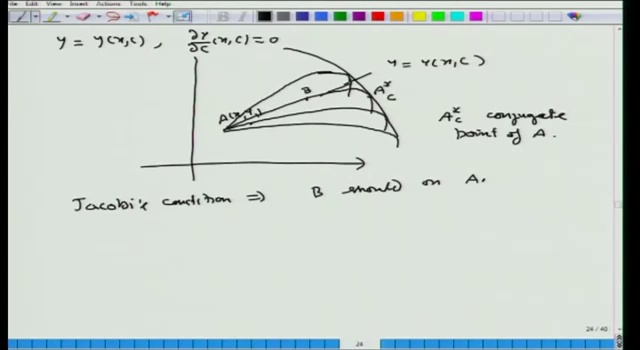 File Edit View Insert Actions Tools Help
y = y(x,c) , ∂y/∂c (x,c) = 0
y = y(x,c)
B
A*c
A(x₁,y₁)
A*c conjugate
point of A.
Jacobi's condition ⇒ B should on A.
24 / 40
24